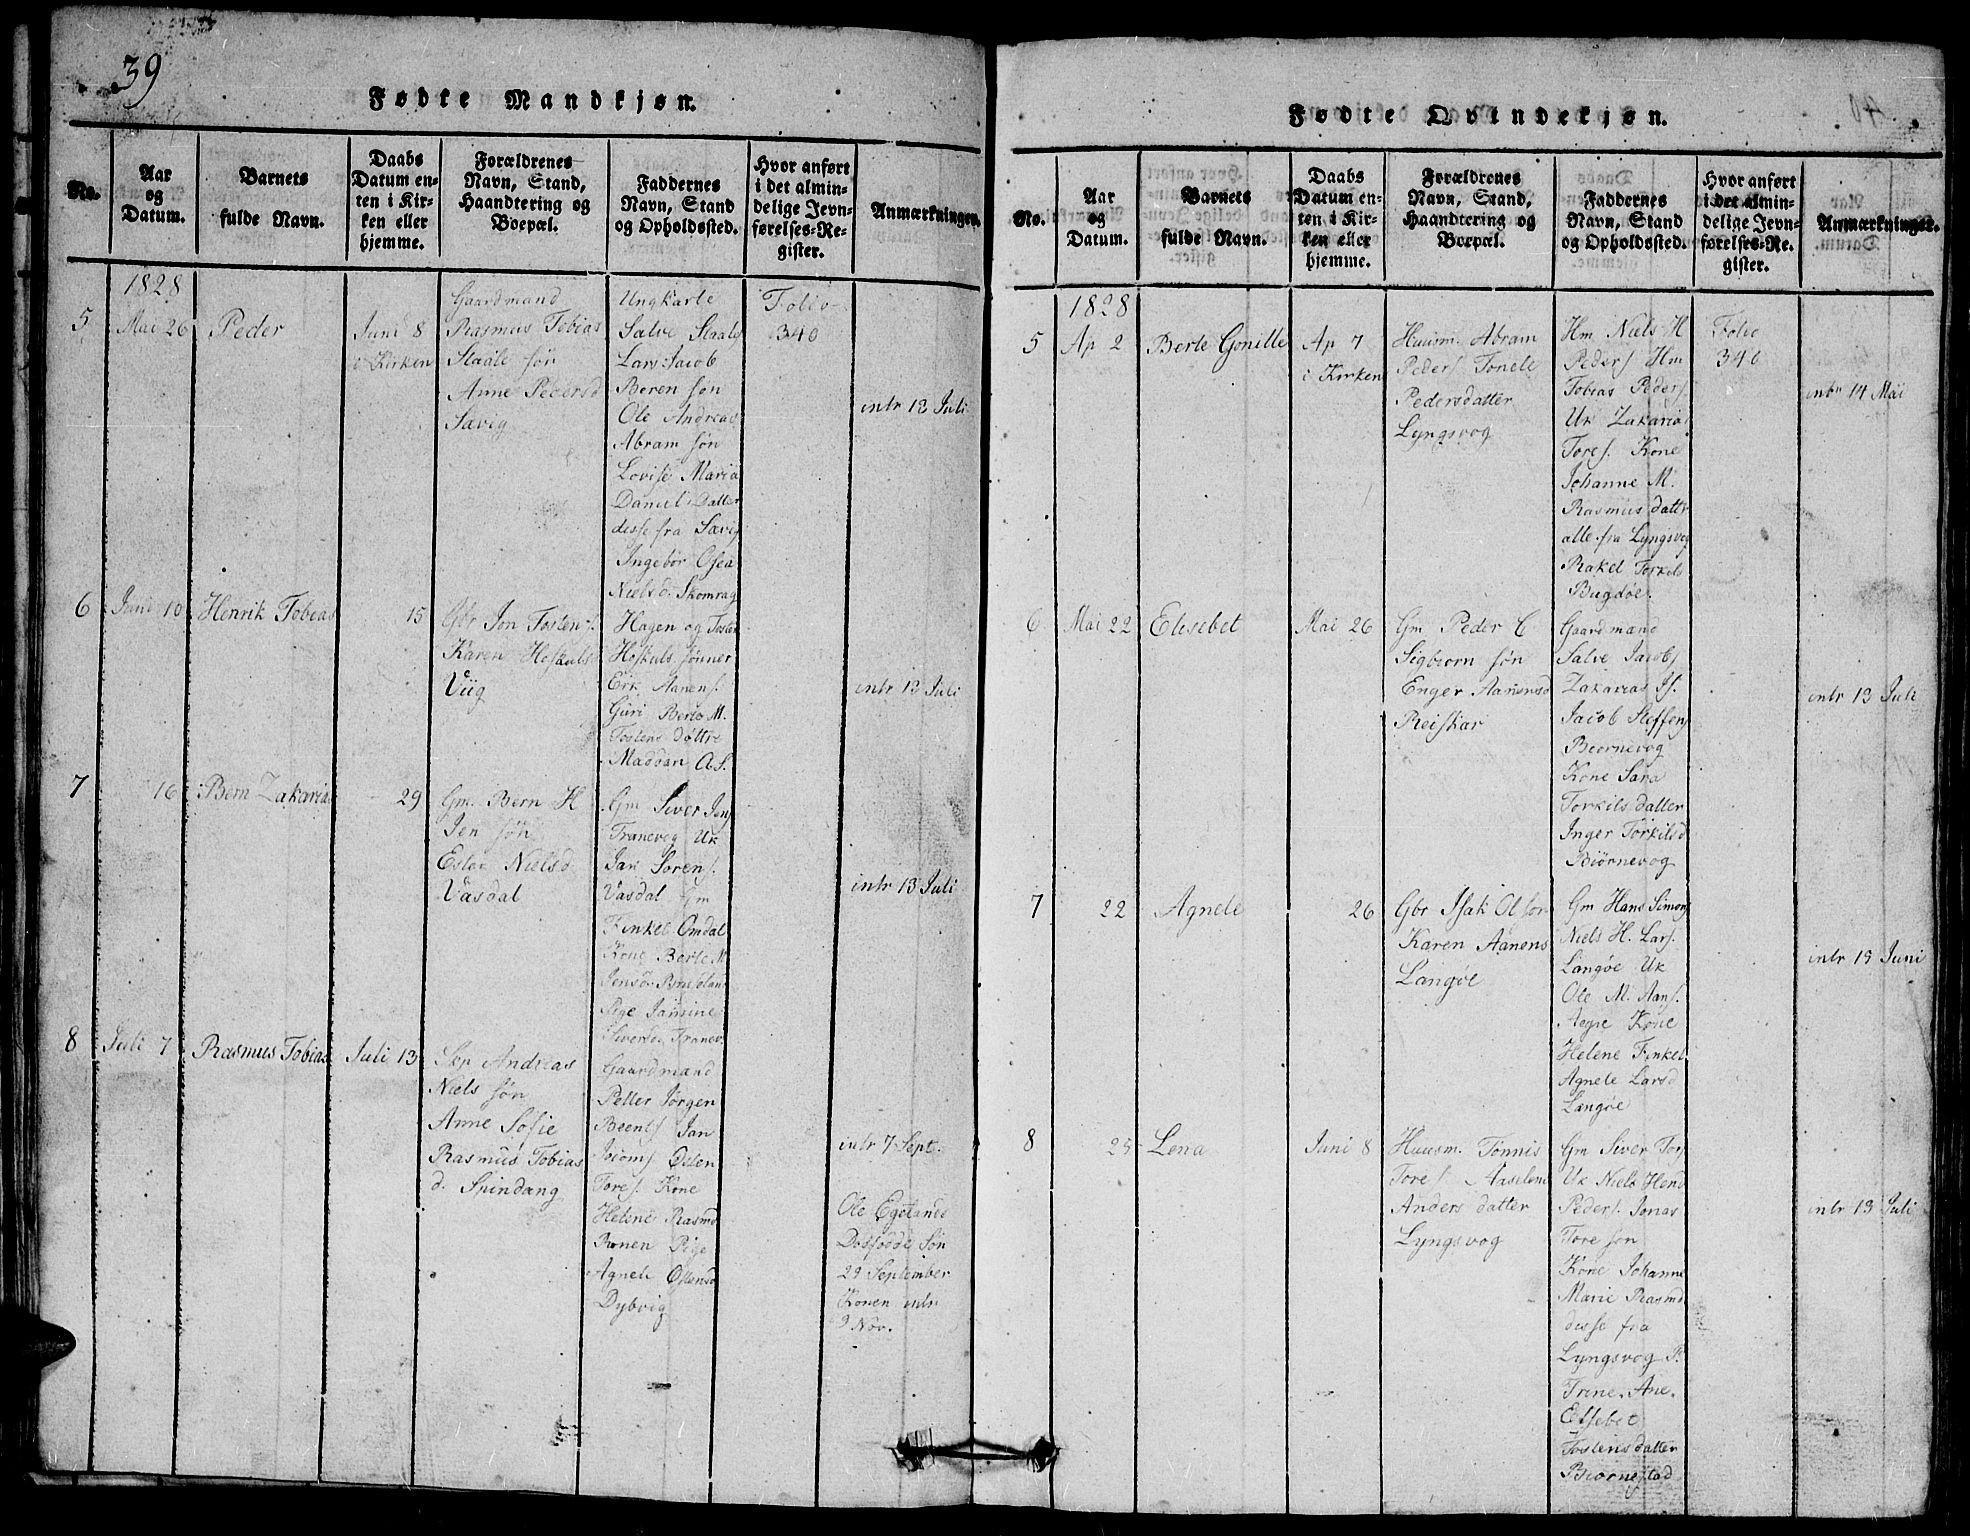 39
Fødte Mandkjøn.
No.
Aar
og
Datum.
Barnets
fulde Navn.
Daabs
Datum en-
ten i Kir-
ken eller
hjemme.
Forældrenes
Navn, Stand,
Haandtering og
Boepæl.
Faddernes
Navn, Stand
og Opholdssted.
Hvor anført
i det almin-
delige Jevn-
førelses-Re-
gister.
Anmærkninger.
1828
5
Mai 26
Peder
Juni 8
i Kirken
Gaardmand
Rasmus Tobias
Staale søn
Anne Pedersd
Sævig
Ungkarle
Salve Staals
Lars Jacob
Beren søn
Ole Andreas
Abram søn
Lovise Maria
Daniels Datter
disse fra Sævig
Ingebor Osea
Nielsd. Skomrag
Folio
340
intr 13 Juli
6
Juni 10
Henrik Tobias
15
Gbr Jon Tosten s.
Karen Heskuls
Viig
Hagen og Tosten
Heskuls sønner
Erk Aanens.
Guri Berte M.
Tostens døttre
Maddan A S.
intr 13 Juli
7
16
Bern Zakarias
29
Gm. Bern H
Jen søn
Ester Nielsd
Vasdal
Gm Siver Jens
Tranevog Uk
Jan Sørens.
Vasdal Gm
Finkel Omdal
Kone Berte M
Jensd.
Pige Jansine
Siversd. Tranev.
intr 13 Juli
8
Juli 7
Rasmus Tobias
Juli 13
Skp Andreas
Niels søn
Anne Sofie
Rasmus Tobias
d. Spindang
Gaardmænd
Petter Jørgen
Beents Jan
Jocoms Osten
Tores. Kone
Helene Rasmd
Ronen Pige
Agnete Ostensd
Dybvig
intr 7 Sept.
Ole Egelands
Dødfødde Søn
29 September
Konen intr
9 Nov.
Fødte Qvindekjøn.
No.
Aar
og
Datum.
Barnets
fulde Navn.
Daabs
Datum en-
ten i Kir-
ken eller
hjemme.
Forældrenes
Navn, Stand,
Haandtering og
Boepæl.
Faddernes
Navn, Stand
og Opholdssted.
Hvor anført
i det almin-
delige Jevn-
førelses-Re-
gister.
Anmærkninger.
1828
5
Ap 2
Berte Gonille
Ap 7
i Kirken
Huusm. Abram
Peders Tonele
Pedersdatter
Lyngsvog
Hm Niels H
Peders Hm
Tobias Peders
Uk Zakarias
Tores. Kone
Johanne M.
Rasmus datter
alle fra Lyngsvog
Rakel Torkels
Bugdøe.
Folio
340
intr 14 Mai
6
Mai 22
Elisebet
Mai 26
Gm Peder C
Sigbiorn søn
Enger Aanensd
Reiskar
Gaardmænd
Salve Jacobs
Zakarias Js.
Jacob Steffens
Biornevog
Kone Sara
Torkils datter
Inger Torkilsd
Biørnevog
intr 13 Juli
7
22
Agnete
26
Gbr Isak Olson
Karen Aanens
Langøe
Gm Hans Simons
Niels H. Lars.
Langøe Uk
Ole M. Aans.
Kone
Helene Finkel
Agnete Larsd
Langøe
intr 19 Juni
8
25
Lena
Juni 8
Huusm. Tonnis
Tores
Anders datter
Lyngsvog
Gm Siver Tors
Uk Niels Hend
Peders. Jonas
Tore søn
Kone Johanne
Marie Rasmd
disse fra
Lyngsvog P.
Trine. Ane.
Elsebet
Tostensdatter
Biornestad
intr 13 Juli